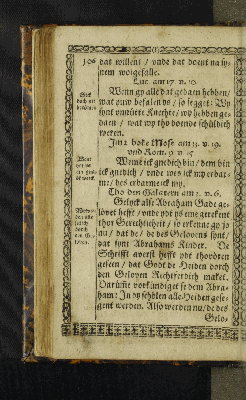 106 dat willent / unde dat doent na sy-
nem wolgefalle.
Luc. am 17. v. 10.
Wenn gy alle dat gedaen hebben /
wat juw befalen ys / so segget: Wy
synt unnütte Knechte / wy hebben ge-
daen / wat wy tho doende schüldich
weren.
Im 2. boke Mose am 33. v. 19.
und Rom. 9. v. 15.
Weme ick gnedich bin / dem bin
ick gnedich / unde wes ick my erbar-
me / des erbarme ick my.
Tho den Galatern am 3. v. 6.
Gelyck alse Abraham Gade ge-
lövet hefft / unde ydt ys eme gerekent
thor Gerechticheit / so erkennet gy jo
nu / dat de / de des Gelovens synt /
dat synt Abrahams Kinder. De
Schrifft averst hefft ydt thovören
geseen / dat Godt de Heiden dorch
den Geloven Rechtferdich maket.
Darümme vorkündiget se dem Abra-
ham: In dy schölen alle Heiden gese-
gent werden. Also werden nu / de des
Gelo-